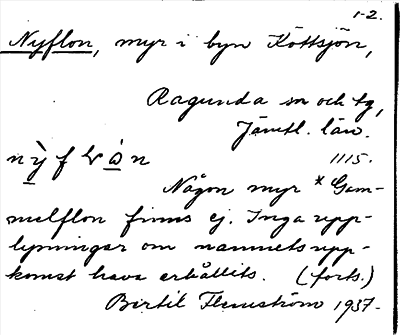 1-2.
Nyflon, myr i byn Köttsjön,
Ragunda sn och tg,
Jämtl. län.
1115.
Någon myr * Gam-
melflon finns ej. Inga upp-
lysningar om namnets upp-
komst hava erhållits. (forts.)
Bertil Flemström 1937.